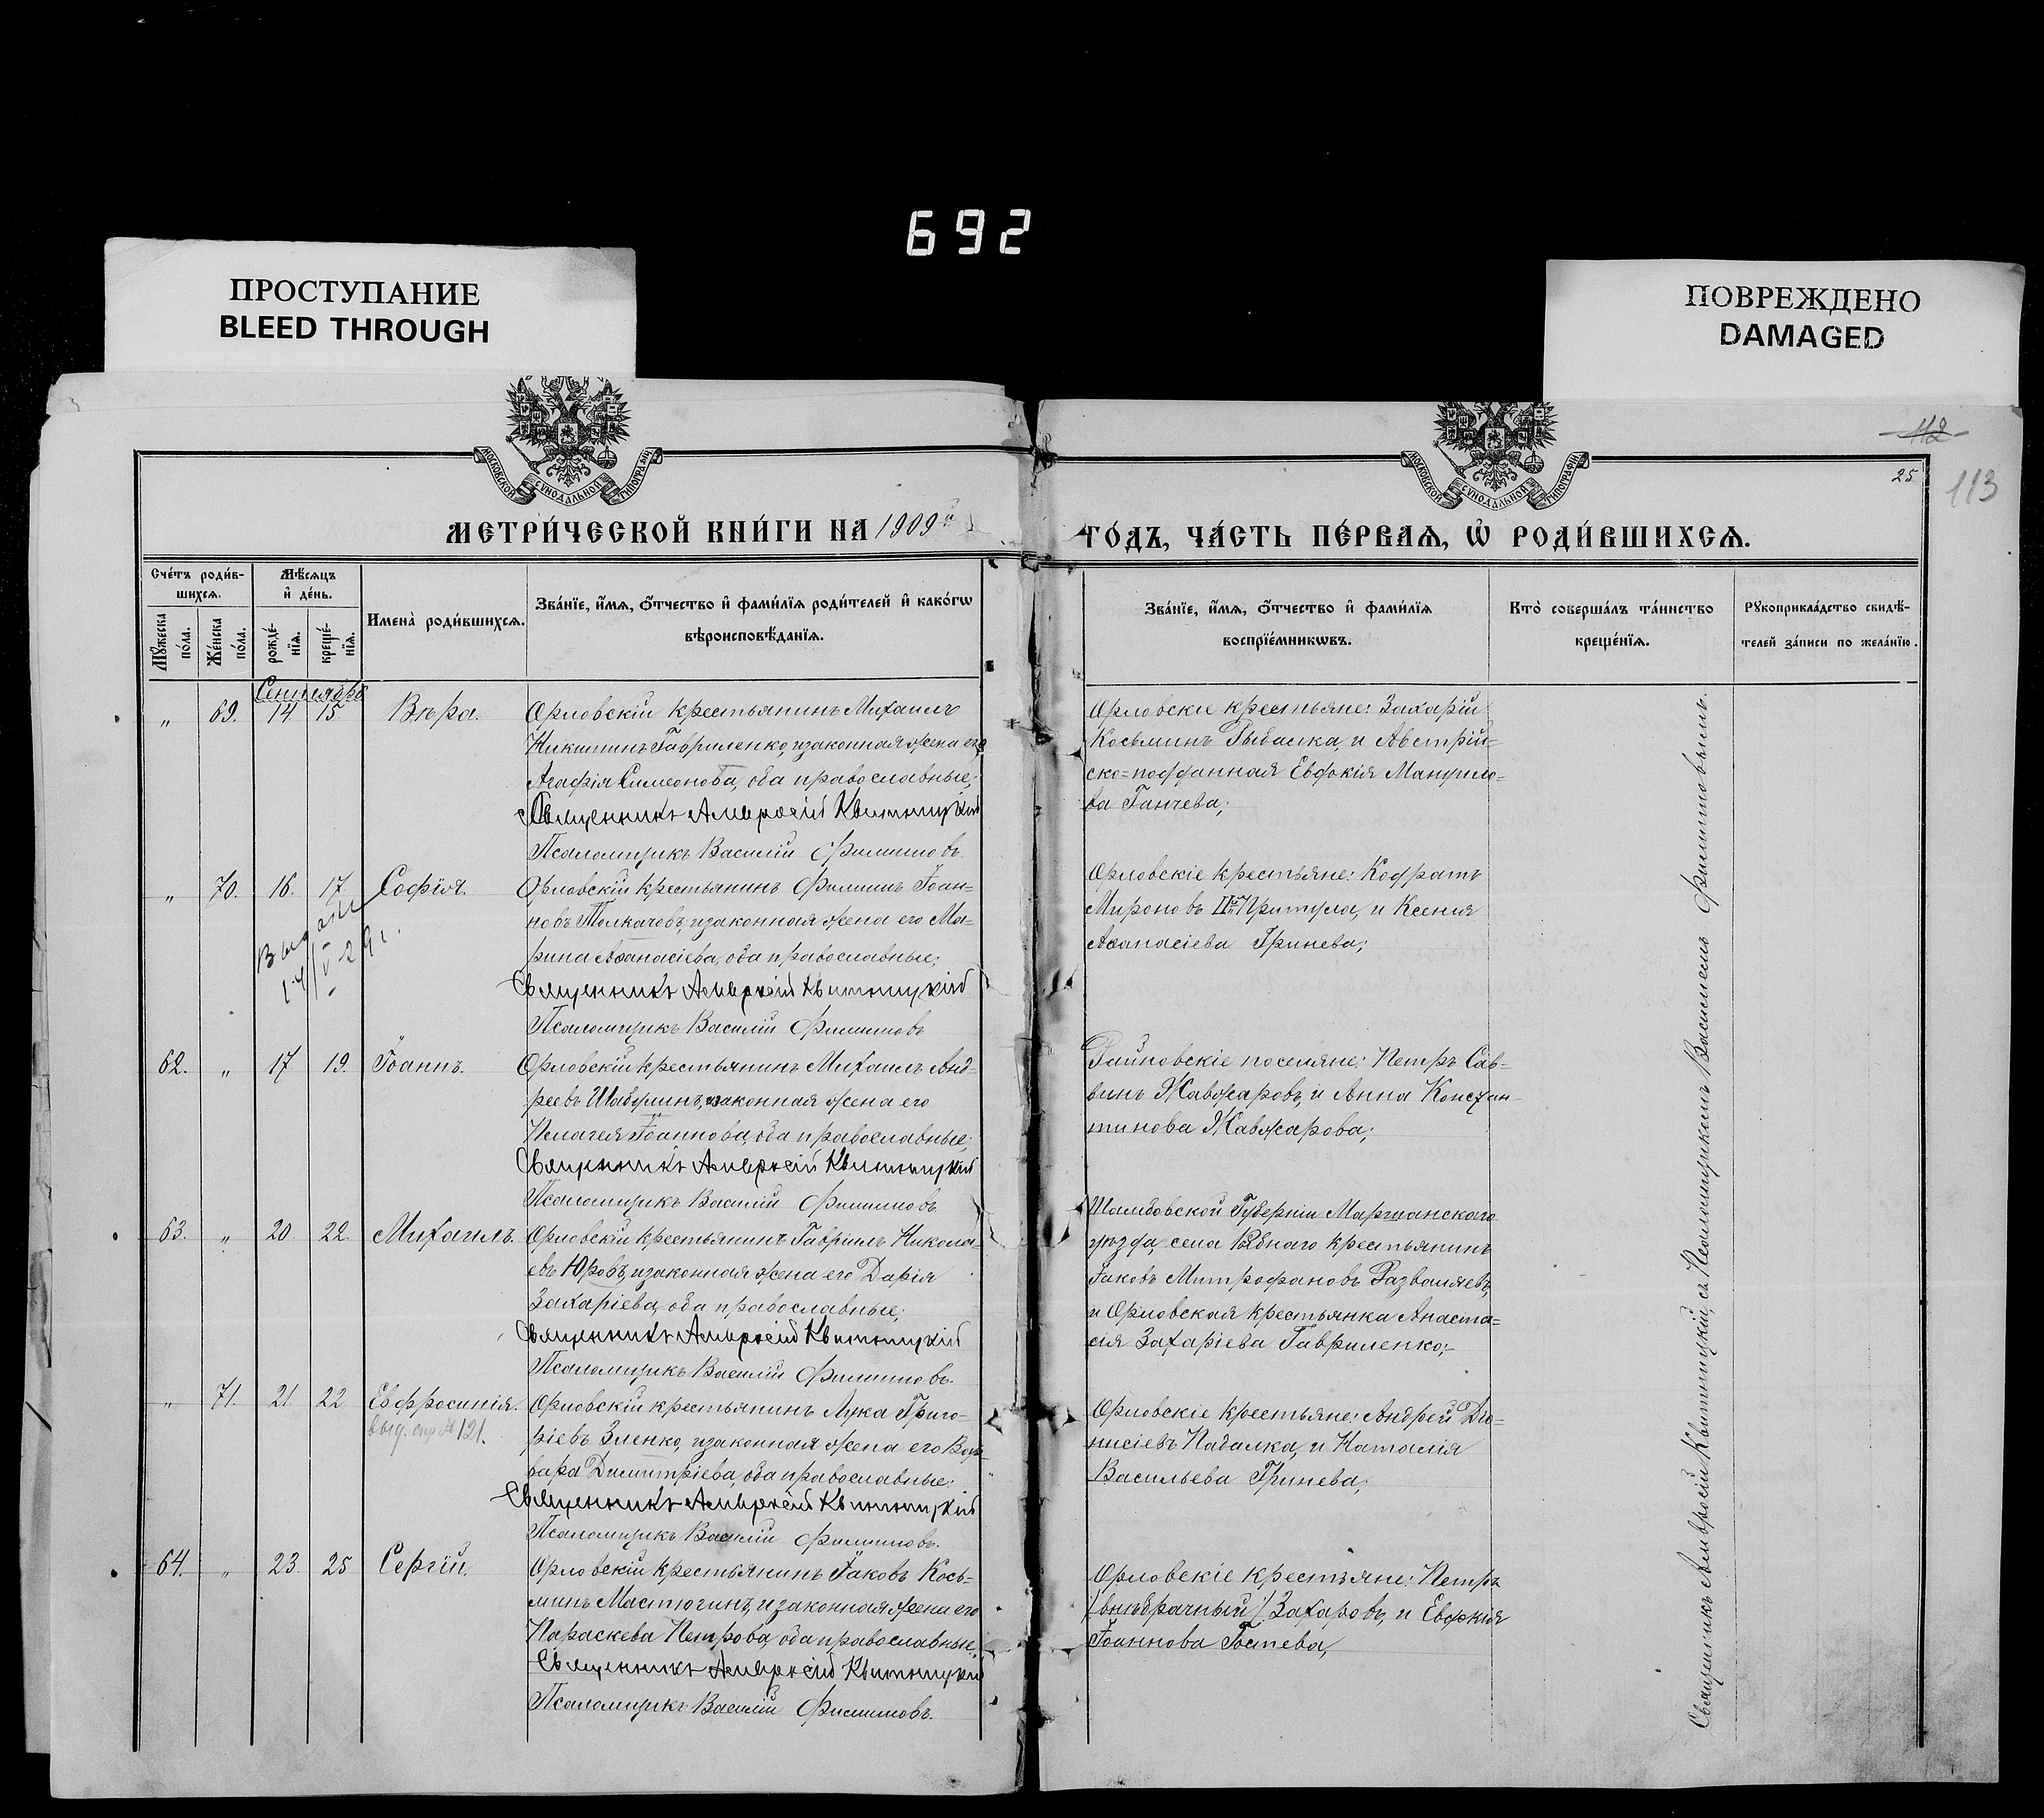 692
ПРОСТУПАНИЕ
BLEED THROUGH
ПОВРЕЖДЕНО
DAMAGED
МОСКОВСКОЙ СУНОДАЛЬНОЙ ТИПОГРАФІИ
МОСКОВСКОЙ СУНОДАЛЬНОЙ ТИПОГРАФІИ
112
25
113
МЕТРИ́ЧЕСКОЙ КНИ́ГИ НА 1909й
ГО́ДЪ, ЧА́СТЬ ПЕ́РВАѦ, Ѡ РОДИ́ВШИХСѦ.
Сче́тъ роди́в-
шихсѧ.
Мꙋ́жеска по́ла.
Же́нска по́ла.
Мѣ́сѧцъ
и де́нь.
рожде́-
нїѧ.
креще́-
нїѧ.
Имена̀ роди́вшихсѧ.
Зва́нїе, и́мѧ, ѻ́тчество и фами́лїѧ роди́телей и како́гѡ
вѣроисповѣ́данїѧ.
Зва́нїе, и́мѧ, ѻ́тчество и фами́лїѧ
воспрїе́мникѡвъ.
Кто̀ соверша́лъ та́инство
креще́нїѧ.
Рꙋкоприкла́дство свидѣ́-
телей за́писи по жела́нїю.
Сентябрь
„ 69. 14 15. Вѣра.
Орловскій крестьянинъ Михаилъ
Никитинъ Гавриленко, и законная жена его
Агафія Симеонова, оба православные;
Священникъ Амвросій Квитницкій
Псаломщикъ Василій Филиповъ.
Орловскіе крестьяне: Захарій
Косьминъ Рыбалка, и Австрій=
ско=подданная Евфкія
ва Ганчева;
„ 70. 16. 17 Софія.
Выдан
14/V-29 г.
Орловскій крестьянинъ Филипъ Іоан-
новъ Толкачовъ, и законная жена его Ма-
рина Аѳанасіева, оба православные;
Священникъ Амвросій Квитницкій
Псаломщикъ Василій Филиповъ
Орловскіе крестьяне: Кодратъ
Мироновъ IIй Притула, и Ксенія
Аѳанасіева Гринева;
62. „ 17 19. Іоаннъ.
Орловскій крестьянинъ Михаилъ Анд-
реевъ Шабулинъ, и законная жена его
Пелагея Іоаннова, оба православные;
Священникъ Амвросій Квитницкій
Псаломщикъ Василій Филиповъ
Райновскіе поселяне: Петръ Сав-
винъ Жавжаровъ, и Анна Констан-
тинова Жавжарова;
63. „ 20. 22. Михаилъ.
Орловскій крестьянинъ Гавріилъ Никола-
евъ Юровъ, и законная жена его Дарія
Захаріева, оба православные;
Священникъ Амвросій Квитницкій
Псаломщикъ Василій Филиповъ.
Тамбовской Губерніи Моршанскаго
уѣзда, села крестьянинъ
Іаковъ Митрофановъ Разваляевъ,
и Орловская крестьянка Анаста=
сія Захаріева Гавриленко;
„ 71. 21. 22 Евфросинія.
выд. спр № 121.
Орловскій крестьянинъ Лука Григо-
ріевъ Зленко, и законная жена его Вар-
вара Димитріева, оба православные;
Священникъ Амвросій Квитницкій
Псаломщикъ Василій Филиповъ.
Орловскіе крестьяне: Андрей Діо-
нисіевъ Падалка, и Наталія
Васильева Гринева;
64. „ 23. 25 Сергій.
Орловскій крестьянинъ Іаковъ Кось-
минъ Мастюгинъ, и законная жена его
Параскева Петрова, оба православные;
Священникъ Амвросій Квитницкій
Псаломщикъ Василій Филиповъ.
Орловскіе крестьяне: Петръ
/внѣбрачный/ Захаровъ, и Евфкія
Іоаннова Гостева;
Священникъ Амвросій Квитницкій, съ Псаломщикомъ Василіемъ Филиповымъ.